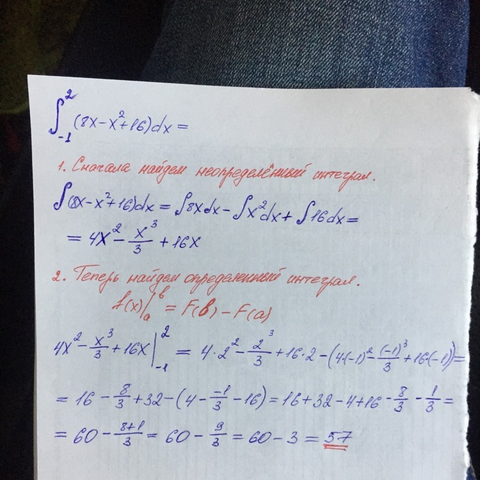 ∫₋₁² (8x-x²+16)dx =
1. Сначала найдем неопределённый интеграл.
∫(8x-x²+16)dx = ∫8xdx - ∫x²dx + ∫16dx =
= 4x² - x³/3 + 16x
2. Теперь найдем определенный интеграл.
f(x)|ₐᵇ = F(b) - F(a)
4x² - x³/3 + 16x |₋₁² = 4·2² - 2³/3 + 16·2 - (4(-1)² - (-1)³/3 + 16(-1)) =
= 16 - 8/3 + 32 - (4 - -1/3 - 16) = 16 + 32 - 4 + 16 - 8/3 - 1/3 =
= 60 - 8+1/3 = 60 - 9/3 = 60 - 3 = 57